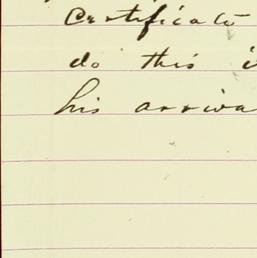 Certificate
do this
his arriva